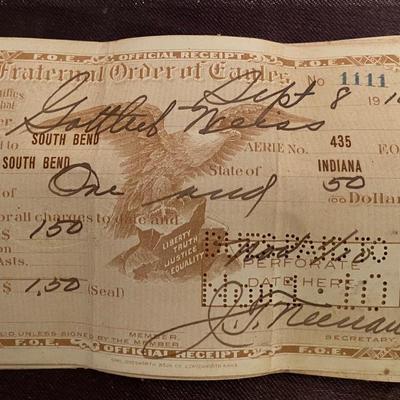 F.O.E. OFFICIAL RECEIPT F.O.E.
Fraternal Order of Eagles. No 1111
tifies
that Sept 8 191
Gottlieb Weiss
d to SOUTH BEND AERIE No. 435 F.O.
SOUTH BEND State of INDIANA
One and 50/100 Dollar
or all charges to date and
$ 150
on
Asts.
LIBERTY
TRUTH
JUSTICE
EQUALITY
PERFORATE
DATE HERE
$ 1,50 (Seal)
LID UNLESS SIGNED BY THE MEMBER. MEMBER.
SECRETARY
F.O.E. OFFICIAL RECEIPT F.O.E.